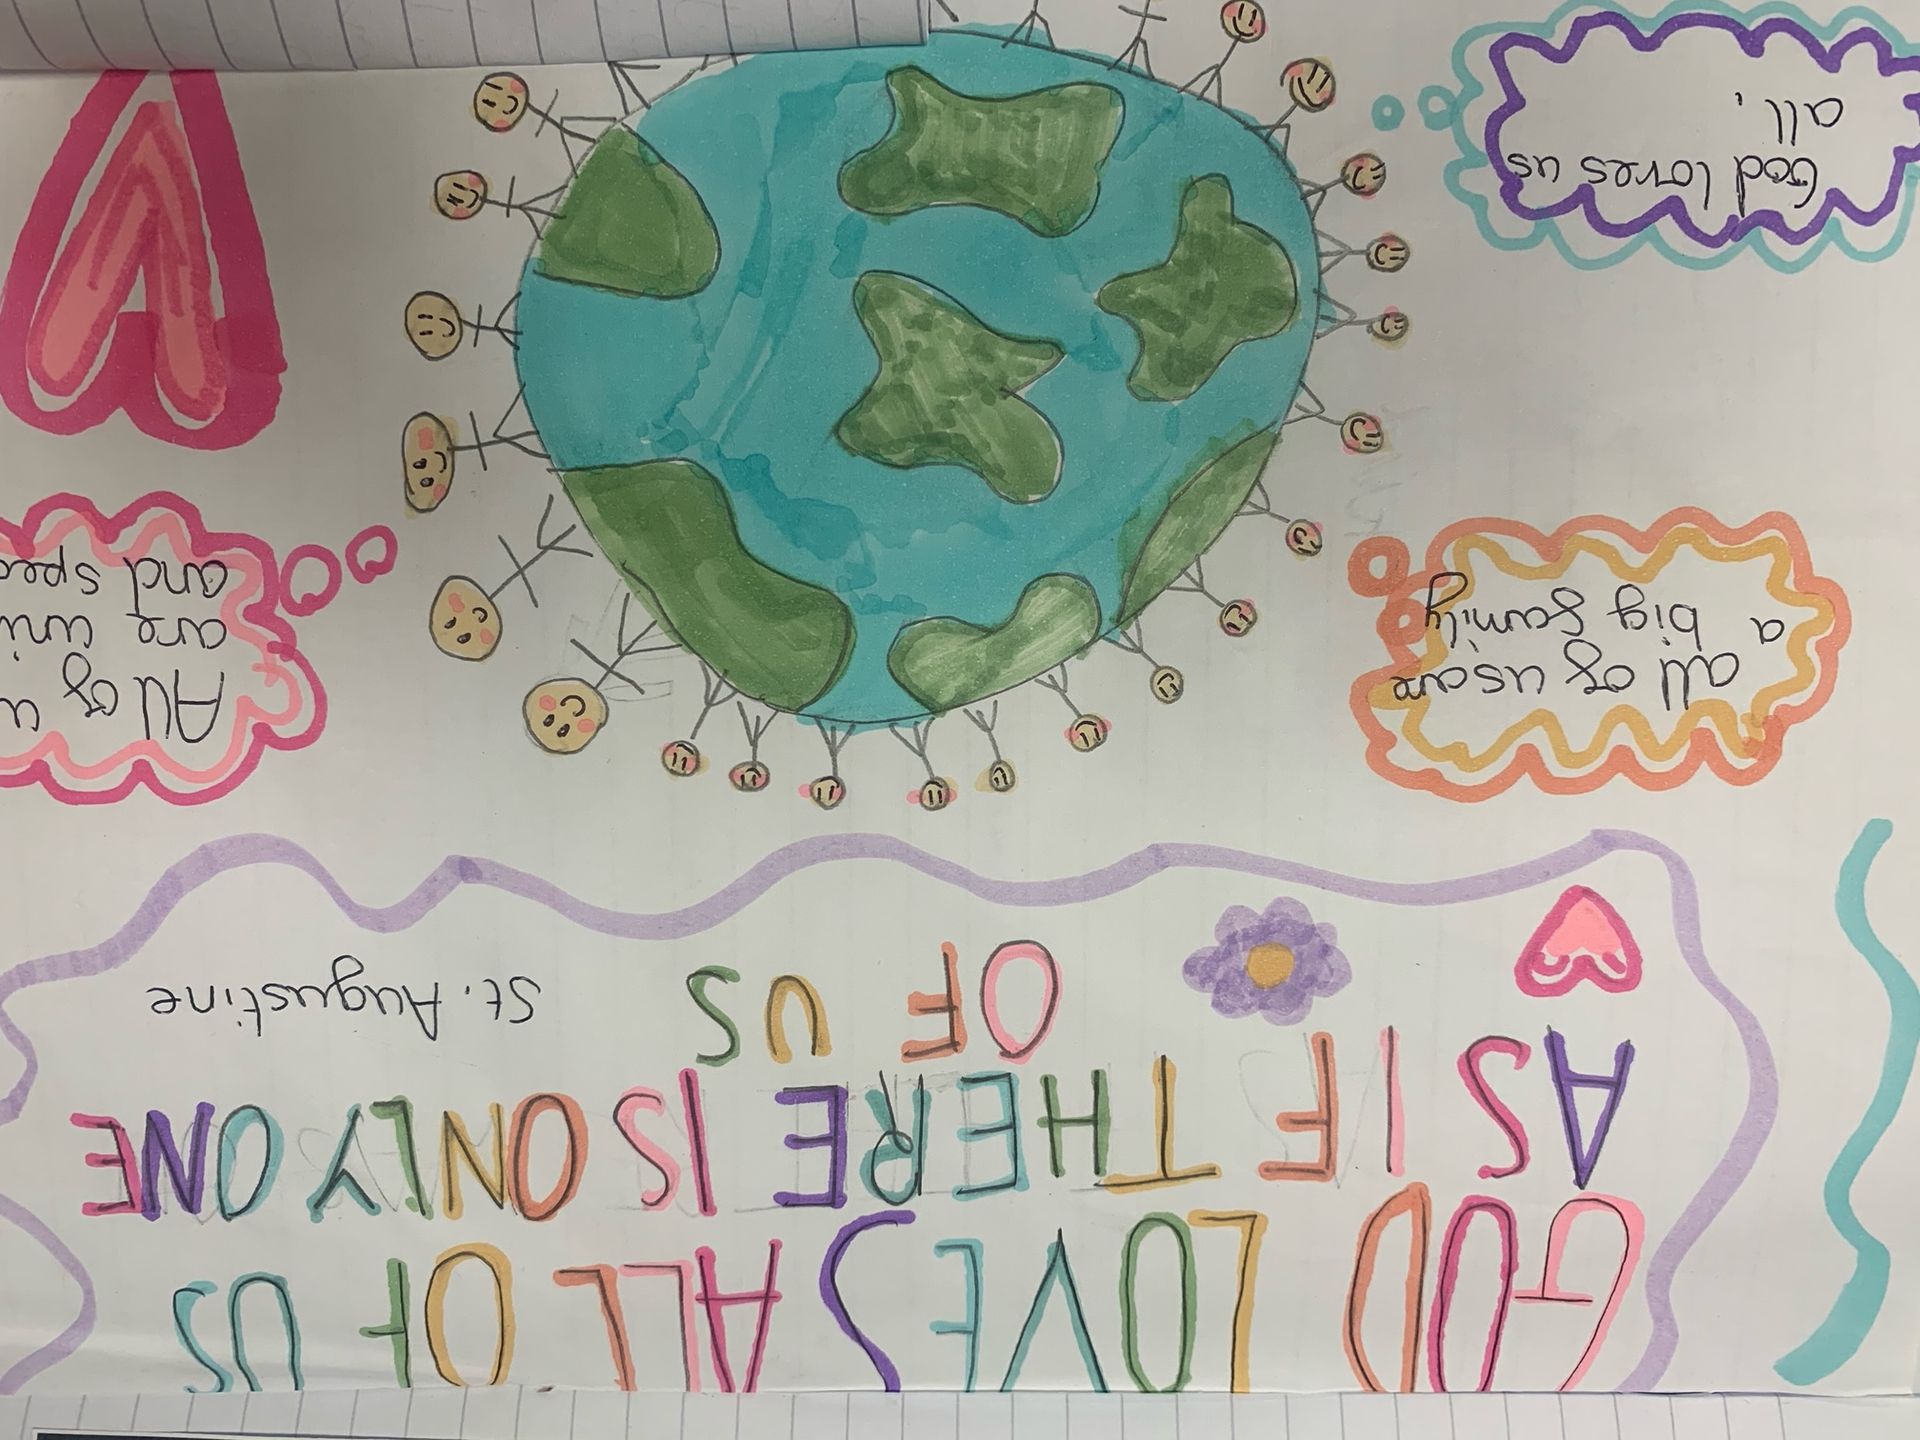 GOD LOVES ALL OF US
AS IF THERE IS ONLY ONE
OF US
St. Augustine
all of us are
a big family
All of
are
and
God loves us
all,